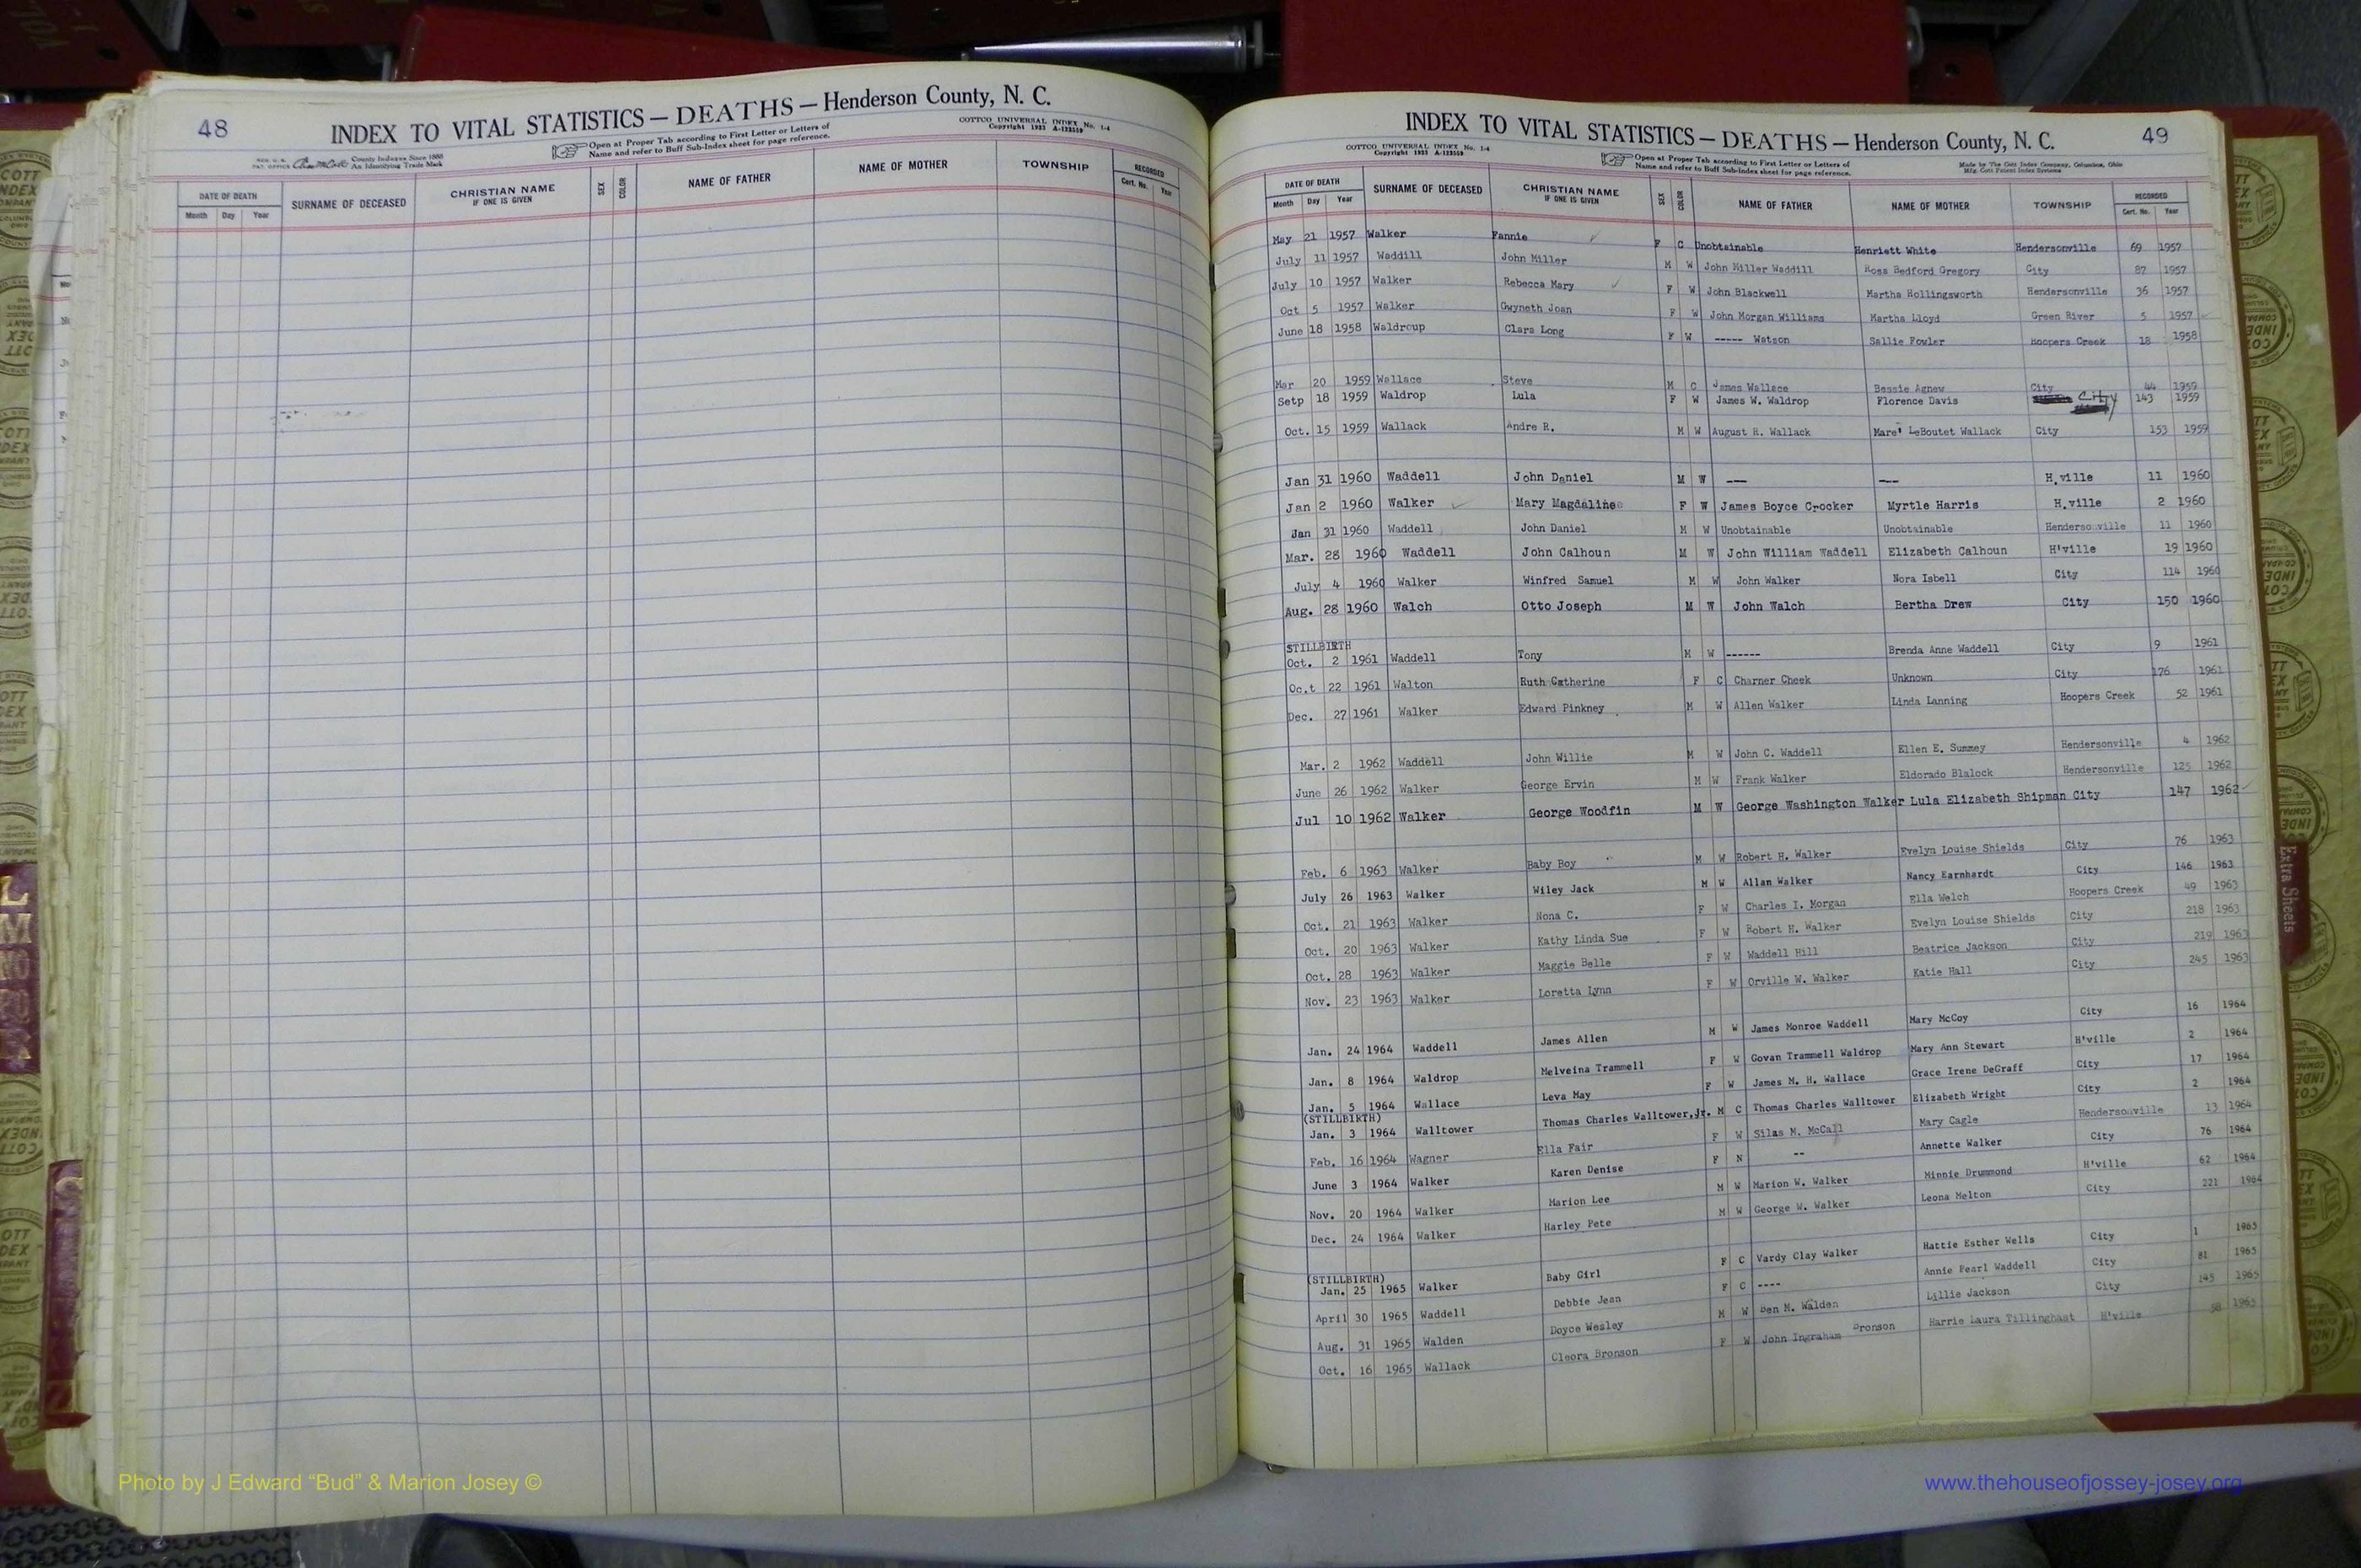 48
INDEX TO VITAL STATISTICS — DEATHS — Henderson County, N. C.
County Indexes Since 1888
An Identifying Trade Mark
Open at Proper Tab according to First Letter or Letters of
Name and refer to Buff Sub-Index sheet for page reference.
COTTCO UNIVERSAL INDEX No. 1-4
Copyright 1933 A-123559
DATE OF DEATH SURNAME OF DECEASED CHRISTIAN NAME IF ONE IS GIVEN SEX COLOR NAME OF FATHER NAME OF MOTHER TOWNSHIP RECORDED
Month Day Year Cert. No. Year
INDEX TO VITAL STATISTICS — DEATHS — Henderson County, N. C. 49
COTTCO UNIVERSAL INDEX No. 1-4
Copyright 1933 A-123559
Open at Proper Tab according to First Letter or Letters of
Name and refer to Buff Sub-Index sheet for page reference.
Made by The Cott Index Company, Columbus, Ohio
Mfg. Cott Patent Index Systems
DATE OF DEATH SURNAME OF DECEASED CHRISTIAN NAME IF ONE IS GIVEN SEX COLOR NAME OF FATHER NAME OF MOTHER TOWNSHIP RECORDED
Month Day Year Cert. No. Year
May 21 1957 Walker Fannie F C Unobtainable Henriett White Hendersonville 69 1957
July 11 1957 Waddill John Miller M W John Miller Waddill Ross Bedford Gregory City 87 1957
July 10 1957 Walker Rebecca Mary F W John Blackwell Martha Hollingsworth Hendersonville 36 1957
Oct 5 1957 Walker Gwyneth Joan F W John Morgan Williams Martha Lloyd Green River 5 1957
June 18 1958 Waldroup Clara Long F W ----- Watson Sallie Fowler Hoopers Creek 18 1958
Mar 20 1959 Wallace Steve M C James Wallace Bessie Agnew City 44 1959
Setp 18 1959 Waldrop Lula F W James W. Waldrop Florence Davis City 143 1959
Oct. 15 1959 Wallack Andre R. M W August R. Wallack Mare' LeBoutet Wallack City 153 1959
Jan 31 1960 Waddell John Daniel M W --- --- H.ville 11 1960
Jan 2 1960 Walker Mary Magdaline F W James Boyce Crocker Myrtle Harris H.ville 2 1960
Jan 31 1960 Waddell John Daniel M W Unobtainable Unobtainable Hendersonville 11 1960
Mar. 28 1960 Waddell John Calhoun M W John William Waddell Elizabeth Calhoun H'ville 19 1960
July 4 1960 Walker Winfred Samuel M W John Walker Nora Isbell City 114 1960
Aug. 28 1960 Walch Otto Joseph M W John Walch Bertha Drew City 150 1960
STILLBIRTH
Oct. 2 1961 Waddell Tony M W ------ Brenda Anne Waddell City 9 1961
Oc.t 22 1961 Walton Ruth Catherine F C Charner Cheek Unknown City 176 1961
Dec. 27 1961 Walker Edward Pinkney M W Allen Walker Linda Lanning Hoopers Creek 52 1961
Mar. 2 1962 Waddell John Willie M W John C. Waddell Ellen E. Summey Hendersonville 4 1962
June 26 1962 Walker George Ervin M W Frank Walker Eldorado Blalock Hendersonville 125 1962
Jul 10 1962 Walker George Woodfin M W George Washington Walker Lula Elizabeth Shipman City 147 1962
Feb. 6 1963 Walker Baby Boy M W Robert H. Walker Evelyn Louise Shields City 76 1963
July 26 1963 Walker Wiley Jack M W Allan Walker Nancy Earnhardt City 146 1963
Oct. 21 1963 Walker Nona C. F W Charles I. Morgan Ella Welch Hoopers Creek 49 1963
Oct. 20 1963 Walker Kathy Linda Sue F W Robert H. Walker Evelyn Louise Shields City 218 1963
Oct. 28 1963 Walker Maggie Belle F W Waddell Hill Beatrice Jackson City 219 1963
Nov. 23 1963 Walker Loretta Lynn F W Orville W. Walker Katie Hall City 245 1963
Jan. 24 1964 Waddell James Allen M W James Monroe Waddell Mary McCoy City 16 1964
Jan. 8 1964 Waldrop Melveina Trammell F W Govan Trammell Waldrop Mary Ann Stewart H'ville 2 1964
Jan. 5 1964 Wallace Leva May F W James M. H. Wallace Grace Irene DeGraff City 17 1964
(STILLBIRTH)
Jan. 3 1964 Walltower Thomas Charles Walltower,Jr. M C Thomas Charles Walltower Elizabeth Wright City 2 1964
Feb. 16 1964 Wagner Ella Fair F W Silas M. McCall Mary Cagle Hendersonville 13 1964
June 3 1964 Walker Karen Denise F N -- Annette Walker City 76 1964
Nov. 20 1964 Walker Marion Lee M W Marion W. Walker Minnie Drummond H'ville 62 1964
Dec. 24 1964 Walker Harley Pete M W George W. Walker Leona Melton City 221 1964
(STILLBIRTH)
Jan. 25 1965 Walker Baby Girl F C Vardy Clay Walker Hattie Esther Wells City 1 1965
April 30 1965 Waddell Debbie Jean F C ---- Annie Pearl Waddell City 81 1965
Aug. 31 1965 Walden Doyce Wesley M W Ben M. Walden Lillie Jackson City 145 1965
Oct. 16 1965 Wallack Cleora Bronson F W John Ingraham Bronson Harrie Laura Tillinghast H'ville 58 1965
Extra Sheets
Photo by J Edward “Bud” & Marion Josey ©
www.thehouseofjossey-josey.org